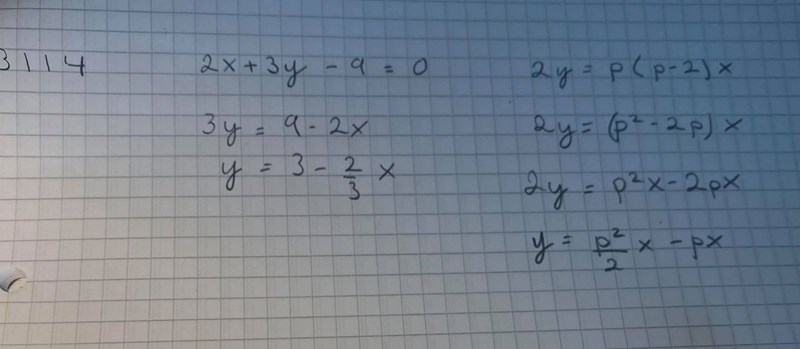 3114
2x + 3y - 9 = 0
3y = 9 - 2x
y = 3 - 2/3 x
2y = p(p-2)x
2y = (p² - 2p)x
2y = p²x - 2px
y = p²/2 x - px